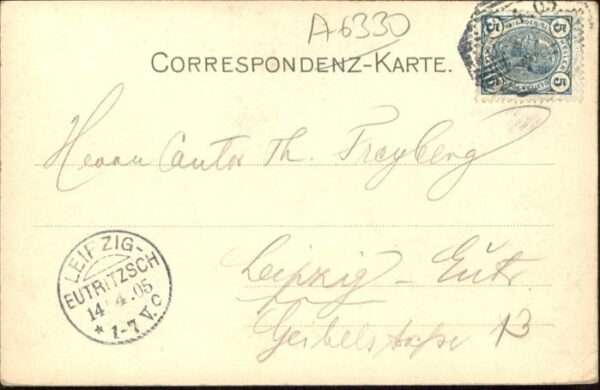 A6330
CORRESPONDENZ-KARTE.
5 5
5 5
Herrn Cantor Th. Freyberg
Leipzig-Eutr.
Geibelstraße 13
LEIPZIG-
EUTRITZSCH
14 4.05
* 1-7 V. c